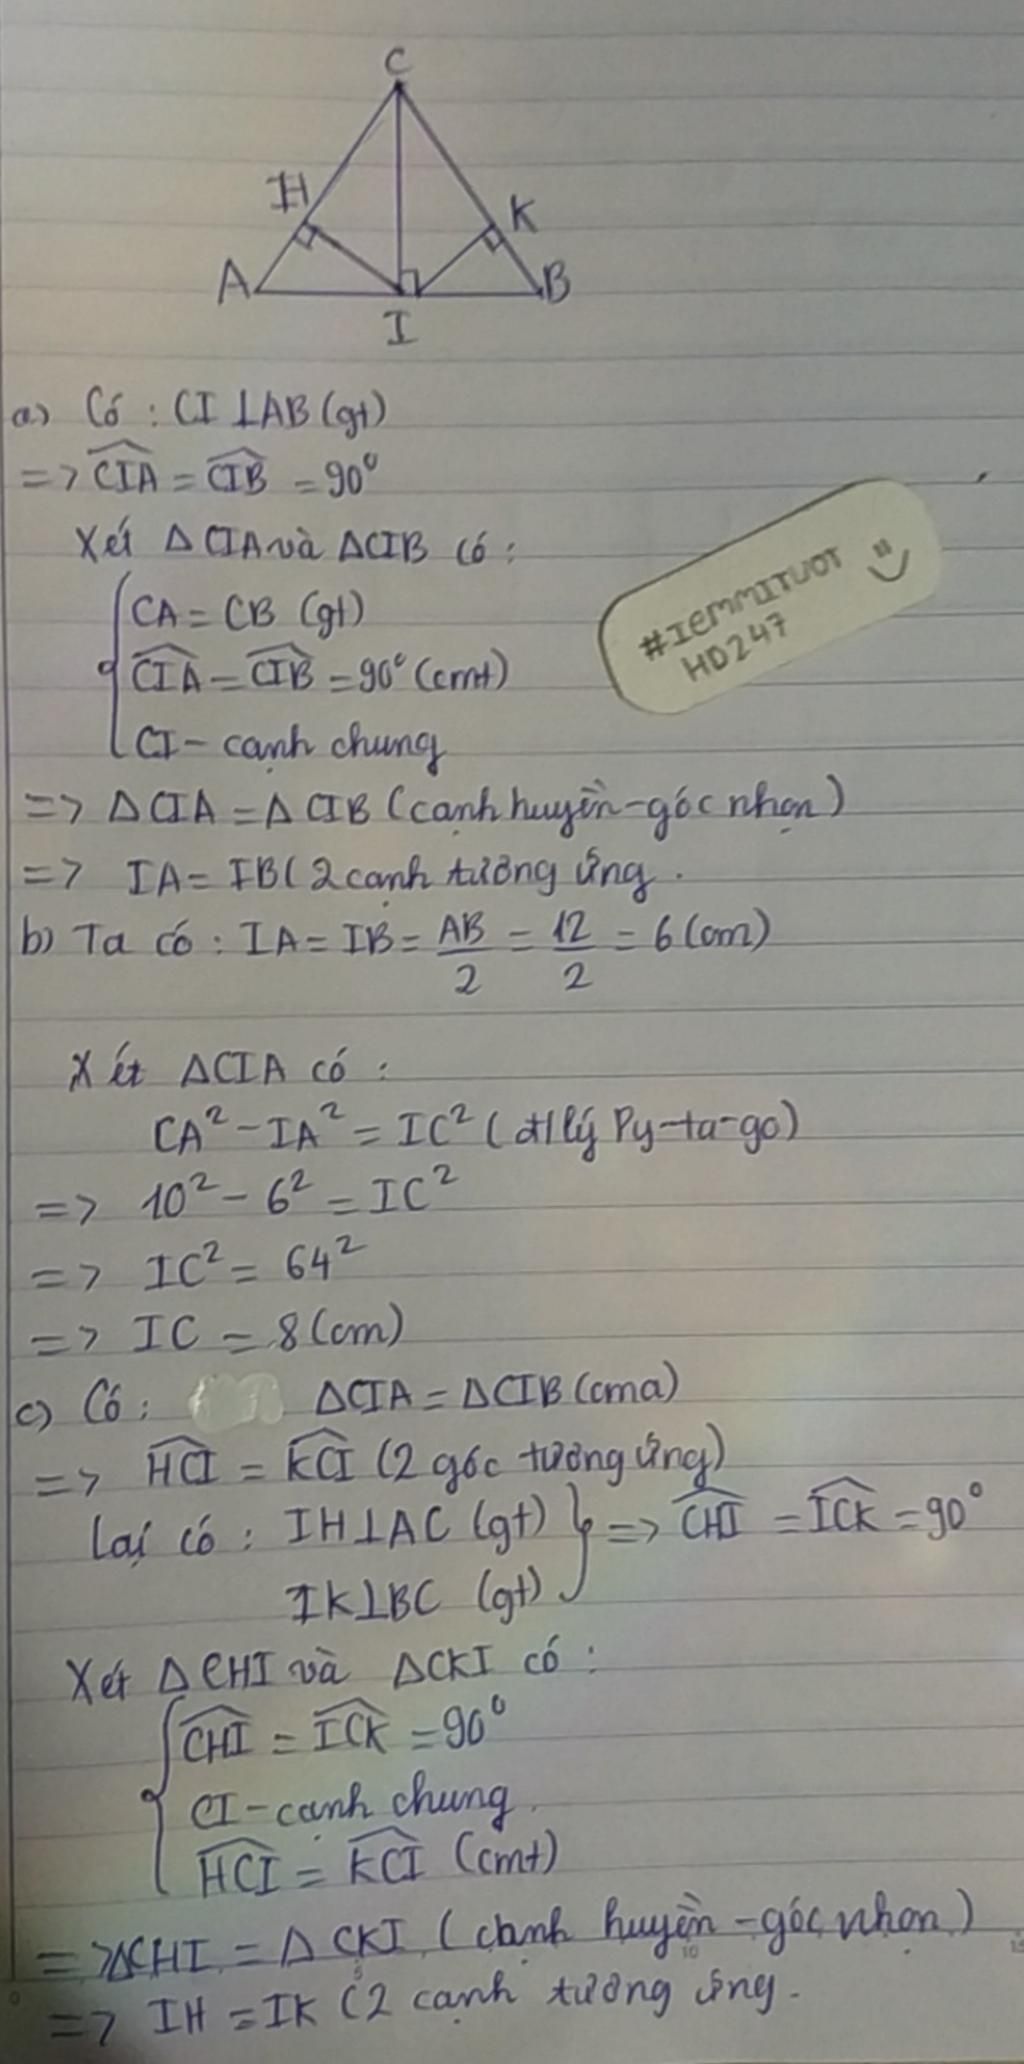 C
H
K
A
B
I
a) Có : CI ⊥ AB (gt)
=> \widehat{CIA} = \widehat{CIB} = 90⁰
Xét △CIA và △CIB có :
CA = CB (gt)
\widehat{CIA} = \widehat{CIB} = 90⁰ (cmt)
CI - cạnh chung
=> △CIA = △CIB (cạnh huyền - góc nhọn)
=> IA = IB ( 2 cạnh tương ứng .
#IEMMITUOT
HD247
b) Ta có : IA = IB = AB/2 = 12/2 = 6 (cm)
Xét △CIA có :
CA² - IA² = IC² ( đ/lý Py-ta-go)
=> 10² - 6² = IC²
=> IC² = 64²
=> IC = 8 (cm)
c) Có : △CIA = △CIB (cma)
=> \widehat{HCI} = \widehat{KCI} (2 góc tương ứng)
Lại có : IH ⊥ AC (gt) } => \widehat{CHI} = \widehat{ICK} = 90⁰
IK ⊥ BC (gt)
Xét △CHI và △CKI có :
\widehat{CHI} = \widehat{ICK} = 90⁰
CI - cạnh chung .
\widehat{HCI} = \widehat{KCI} (cmt)
=> △CHI = △CKI ( cạnh huyền - góc nhọn )
=> IH = IK (2 cạnh tương ứng .
0 5 10 15